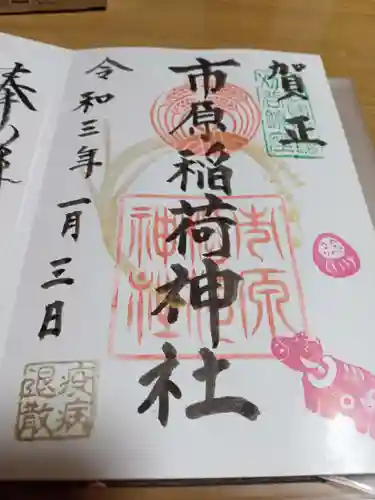 賀正
市原稲荷神社
市原
稲荷
神社
令和三年一月三日
疫病
退散
奉拝